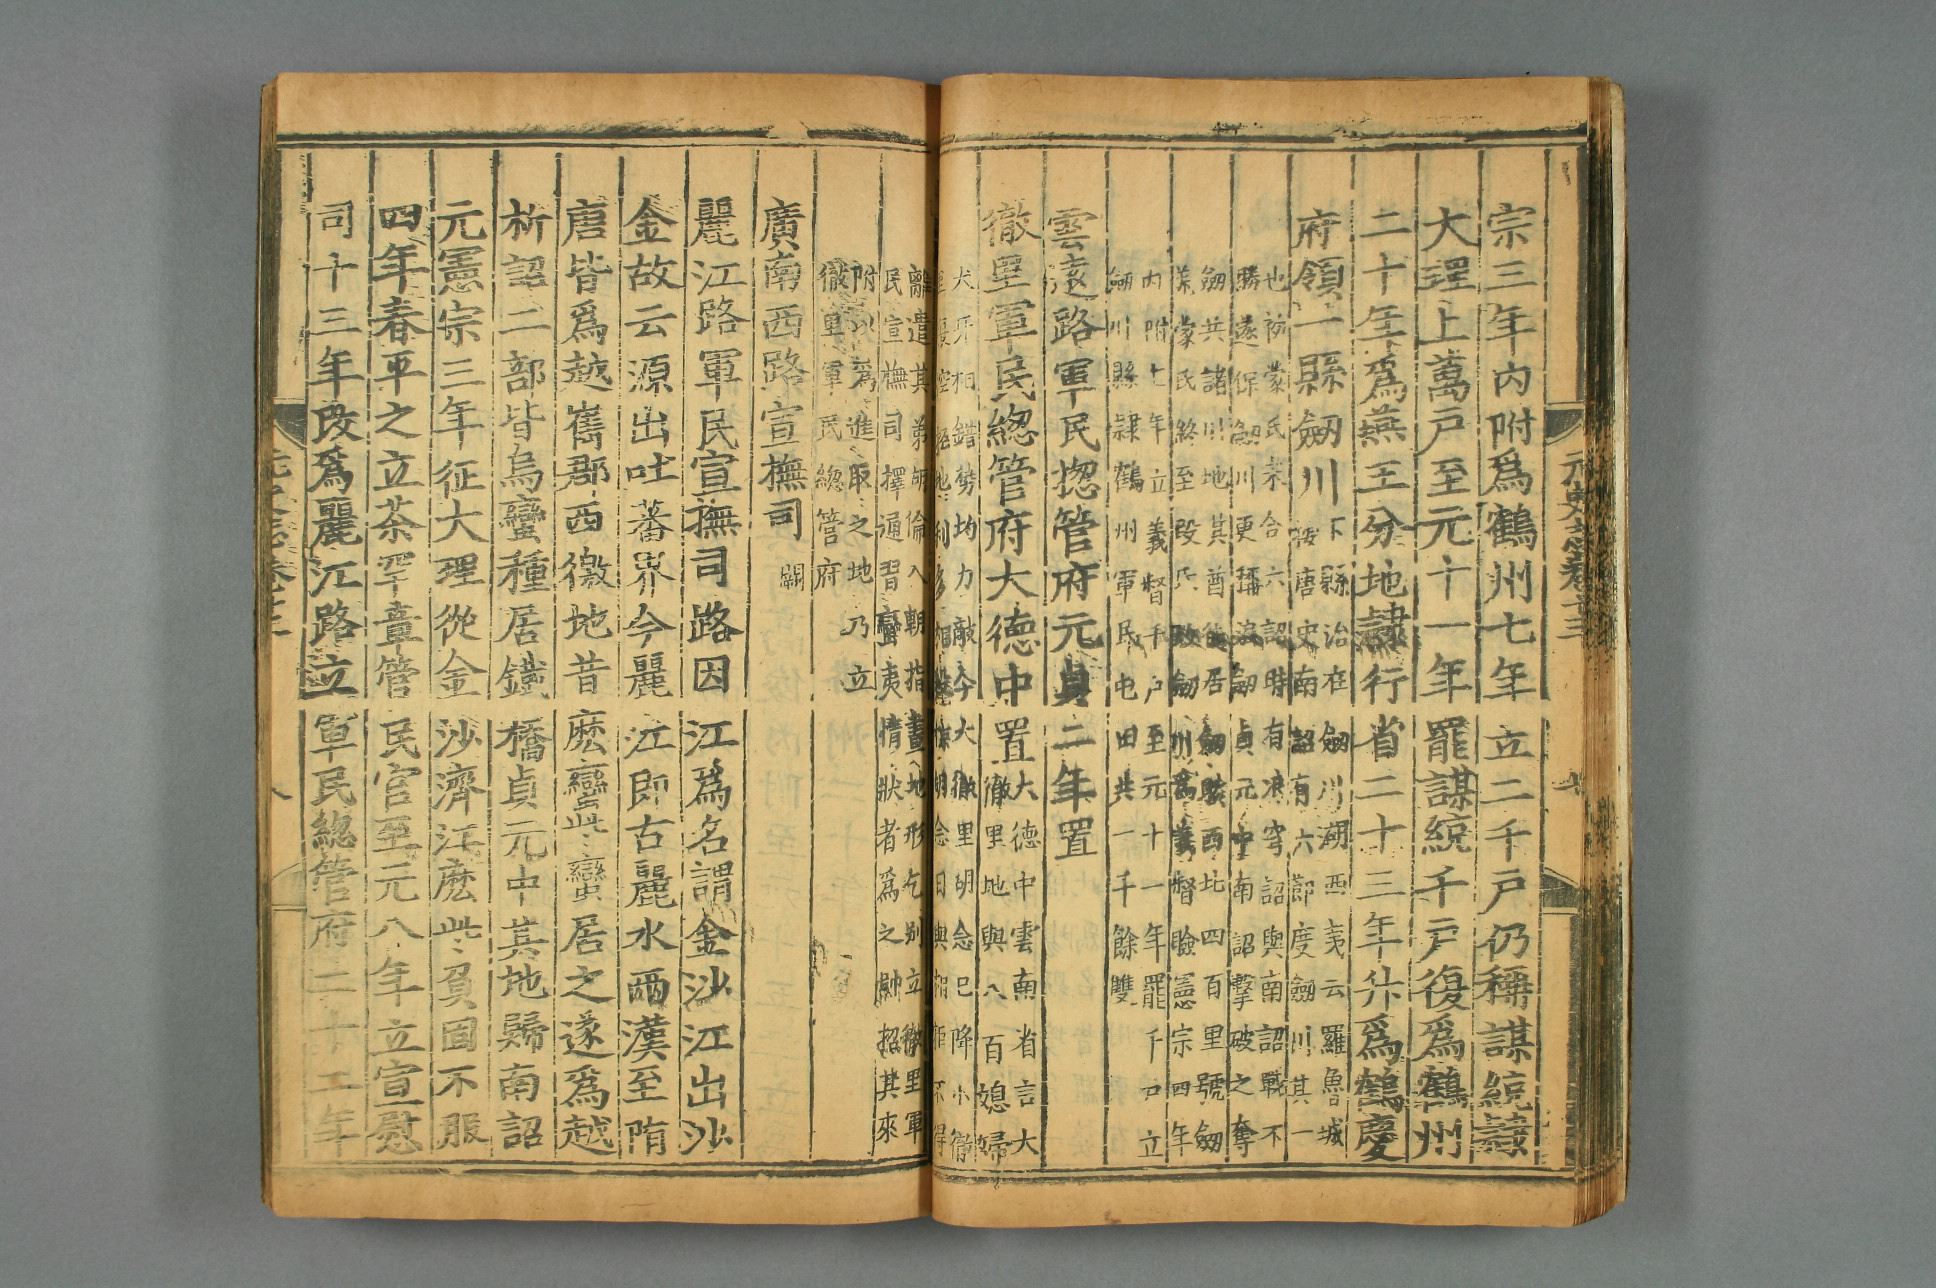 宗三年內附爲鶴州七年立二千戸仍稱謀統隷
大理上萬戸至元十一年罷謀統千戸復爲鶴州
二十年爲燕王分地隷行省二十三年升爲鶴慶
府領一縣劒川下縣治在劒川湖西夷云羅魯城
按唐史南詔有六節度劒川其一
也初蒙氏未合六詔時有浪穹詔與南詔戰不
勝遂保劒川更稱浪劒貞元中南詔擊破之奪
劒共諸川地其酋徙居劒睒西北四百里號劒
羌蒙氏終至段氏改劒川爲義督瞼憲宗四年
內附七年立義督千戸至元十一年罷千戸立
劒川縣隷鶴州軍民屯田共一千餘雙
雲遠路軍民揔管府元貞二年置
徹里軍民緫管府大德中置大德中雲南省言大
徹里地與八百媳婦
犬牙相錯勢均力敵今大徹里胡念巳降小徹
里復控扼地利多相殺掠胡念日與相拒不得
離遣其弟胡倫入朝指畫地形乞别立徹里軍
民宣撫司擇通習蠻夷情狀者爲之帥招其來
附以爲進取之地乃立
徹里軍民緫管府
廣南西路宣撫司闕
麗江路軍民宣撫司路因江爲名謂金沙江出沙
金故云源出吐蕃界今麗江即古麗水兩漢至隋
唐皆爲越嶲郡西徼地昔麽蠻些蠻居之遂爲越
析詔二部皆烏蠻種居鐵橋貞元中其地歸南詔
元憲宗三年征大理從金沙濟江麽些負固不服
四年春平之立茶罕章管民官至元八年立宣慰
司十三年改爲麗江路立軍民緫管府二十二年